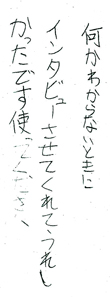 何かわからないときに
インタビューさせてくれてうれし
かったです使ってください